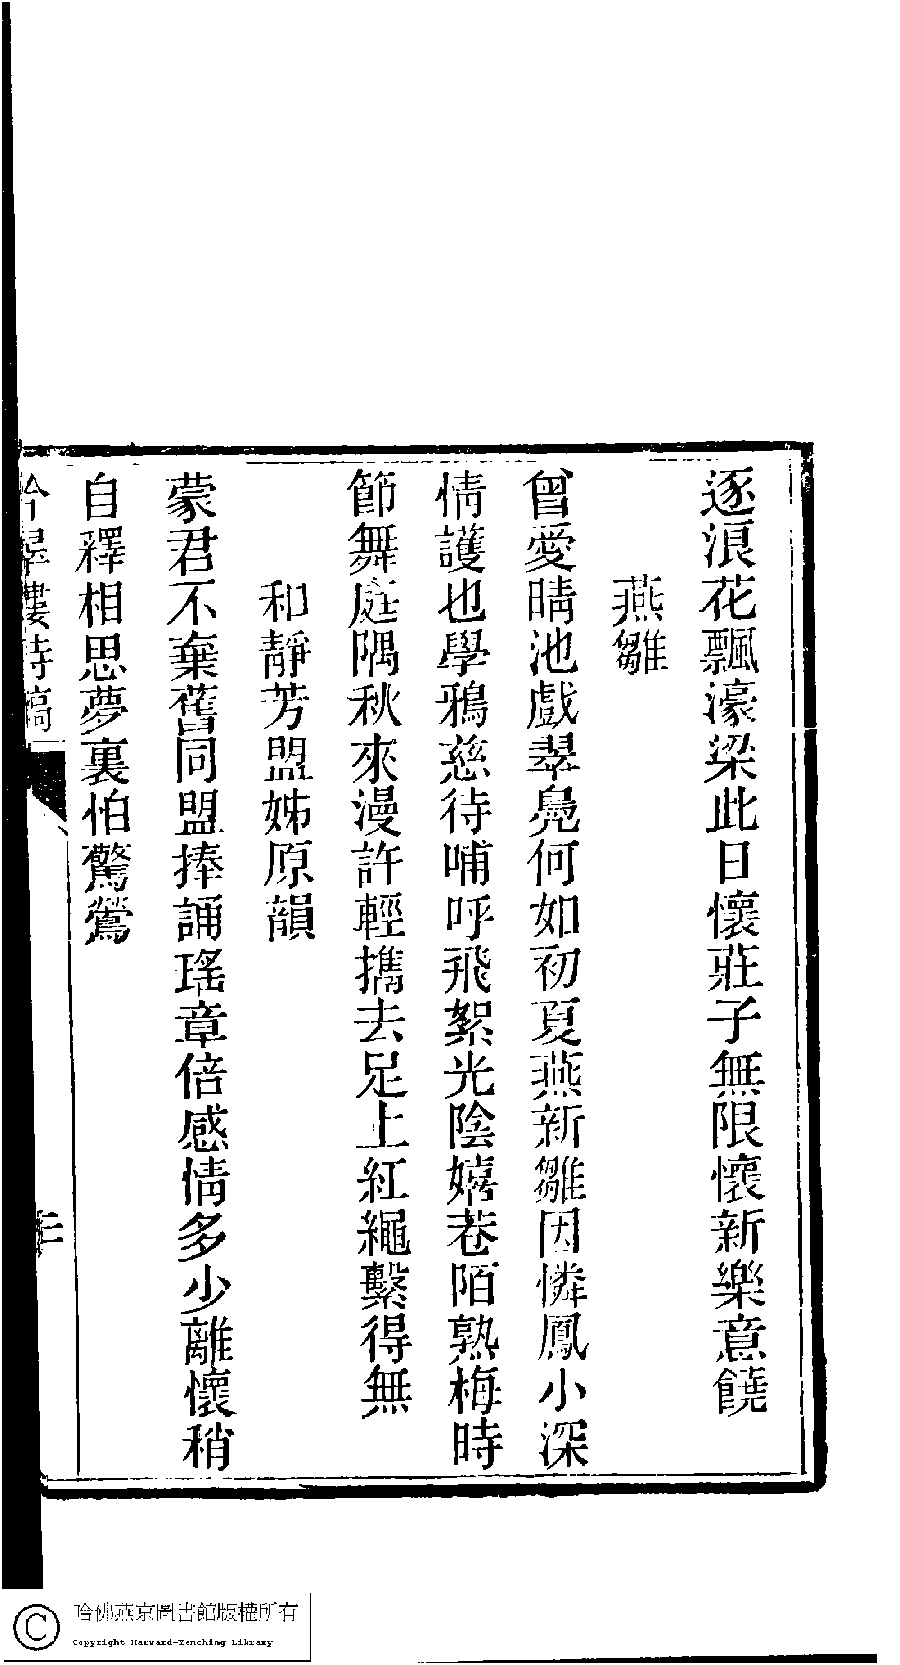 逐浪花飄濠梁此日懷莊子無限懷新樂意饒
燕雛
曾愛晴池戲翠鳧何如初夏燕新雛因憐鳳小深
情護也學鴉慈待哺呼飛絮光陰嬉巷陌熟梅時
節舞庭隅秋來漫許輕攜去足上紅繩繫得無
和靜芳盟姊原韻
蒙君不棄舊同盟捧誦瑤章倍感情多少離懷稍
自釋相思夢裏怕驚鶯
樓詩稿
哈佛燕京圖書館版權所有
Copyright Harvard-Yenching Library